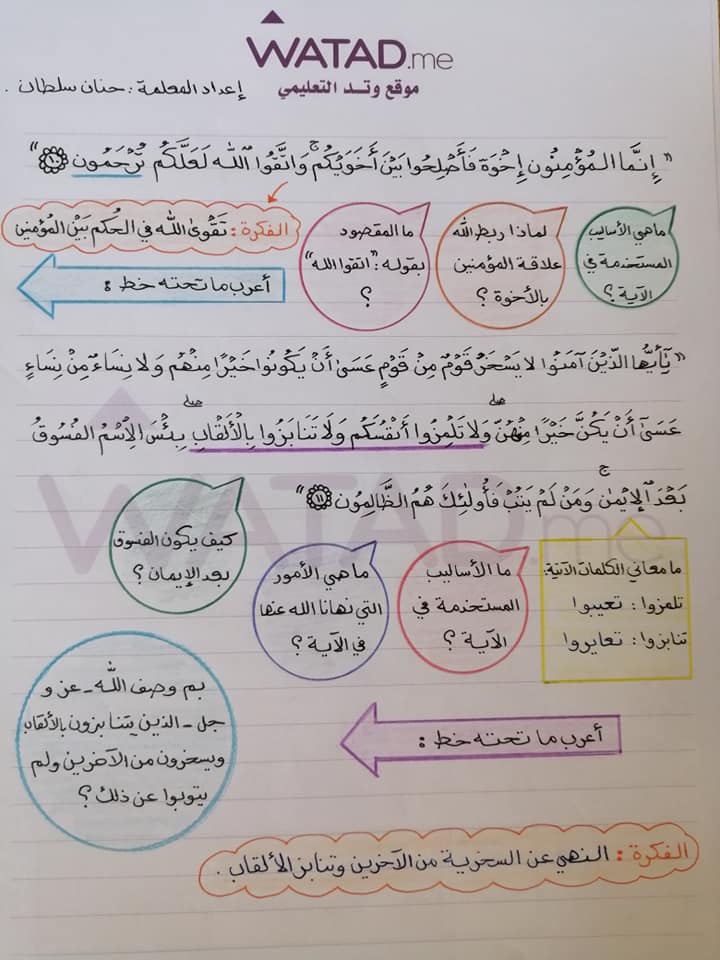 WATAD.me
موقع وتد التعليمي
إعداد المعلمة : حنان سلطان .
" إِنَّمَا المُؤْمِنُون إِخْوَة فَأَصْلِحُوا بَيْنَ أَخَوَيْكُمْ ۚ وَاتَّقُوا اللَّه لَعَلَّكُمْ تُرْحَمُون ١٠ "
الفكرة : تَقْوىٰ اللّٰه في الحُكم بَيْن المُؤمنين
ما هي الأساليب
المستخدمة في
الآية ؟
لماذا ربط الله
علاقة المؤمنين
بالأخوة ؟
ما المقصود
بقوله : "اتقوا الله"
؟
أعرب ما تحته خط :
" يَٰأَيُّها الذّيْن آمَنُوا لا يَسْخَرْ قَوْمٌ مِنْ قَوْمٍ عَسَىٰ أَنْ يَكُونُوا خَيْرًا مِنْهُم وَلا نِسَاءٌ مِنْ نِسَاءٍ
عَسَىٰ أَنْ يَكُنَّ خَيْرًا مِنْهُنّ ۖ وَلا تَلْمِزُوا أَنْفُسَكُم وَلا تَنَابَزُوا بِالأَلْقَابِ ۖ بِئْسَ الاِسْمُ الفُسُوقُ
بَعْدَ الإِيْمٰنِ ۚ وَمَنْ لَمْ يَتُبْ فَأُولٰئِكَ هُمُ الظَّالِمُون ١١ "
ما معاني الكلمات الآتية:
تلمزوا : تعيبوا
تنابزوا : تعايروا
ما الأساليب
المستخدمة في
الآية ؟
ما هي الأمور
التي نهانا الله عنها
في الآية ؟
كيف يكون الفسوق
بعد الإيمان ؟
بم وصف اللّٰه - عز و
جل - الذين يتنابزون بالألقاب
ويسخرون من الآخرين ولم
يتوبوا عن ذلك ؟
أعرب ما تحته خط :
الفكرة : النهي عن السخرية من الآخرين وتنابز الألقاب .
WATAD.me